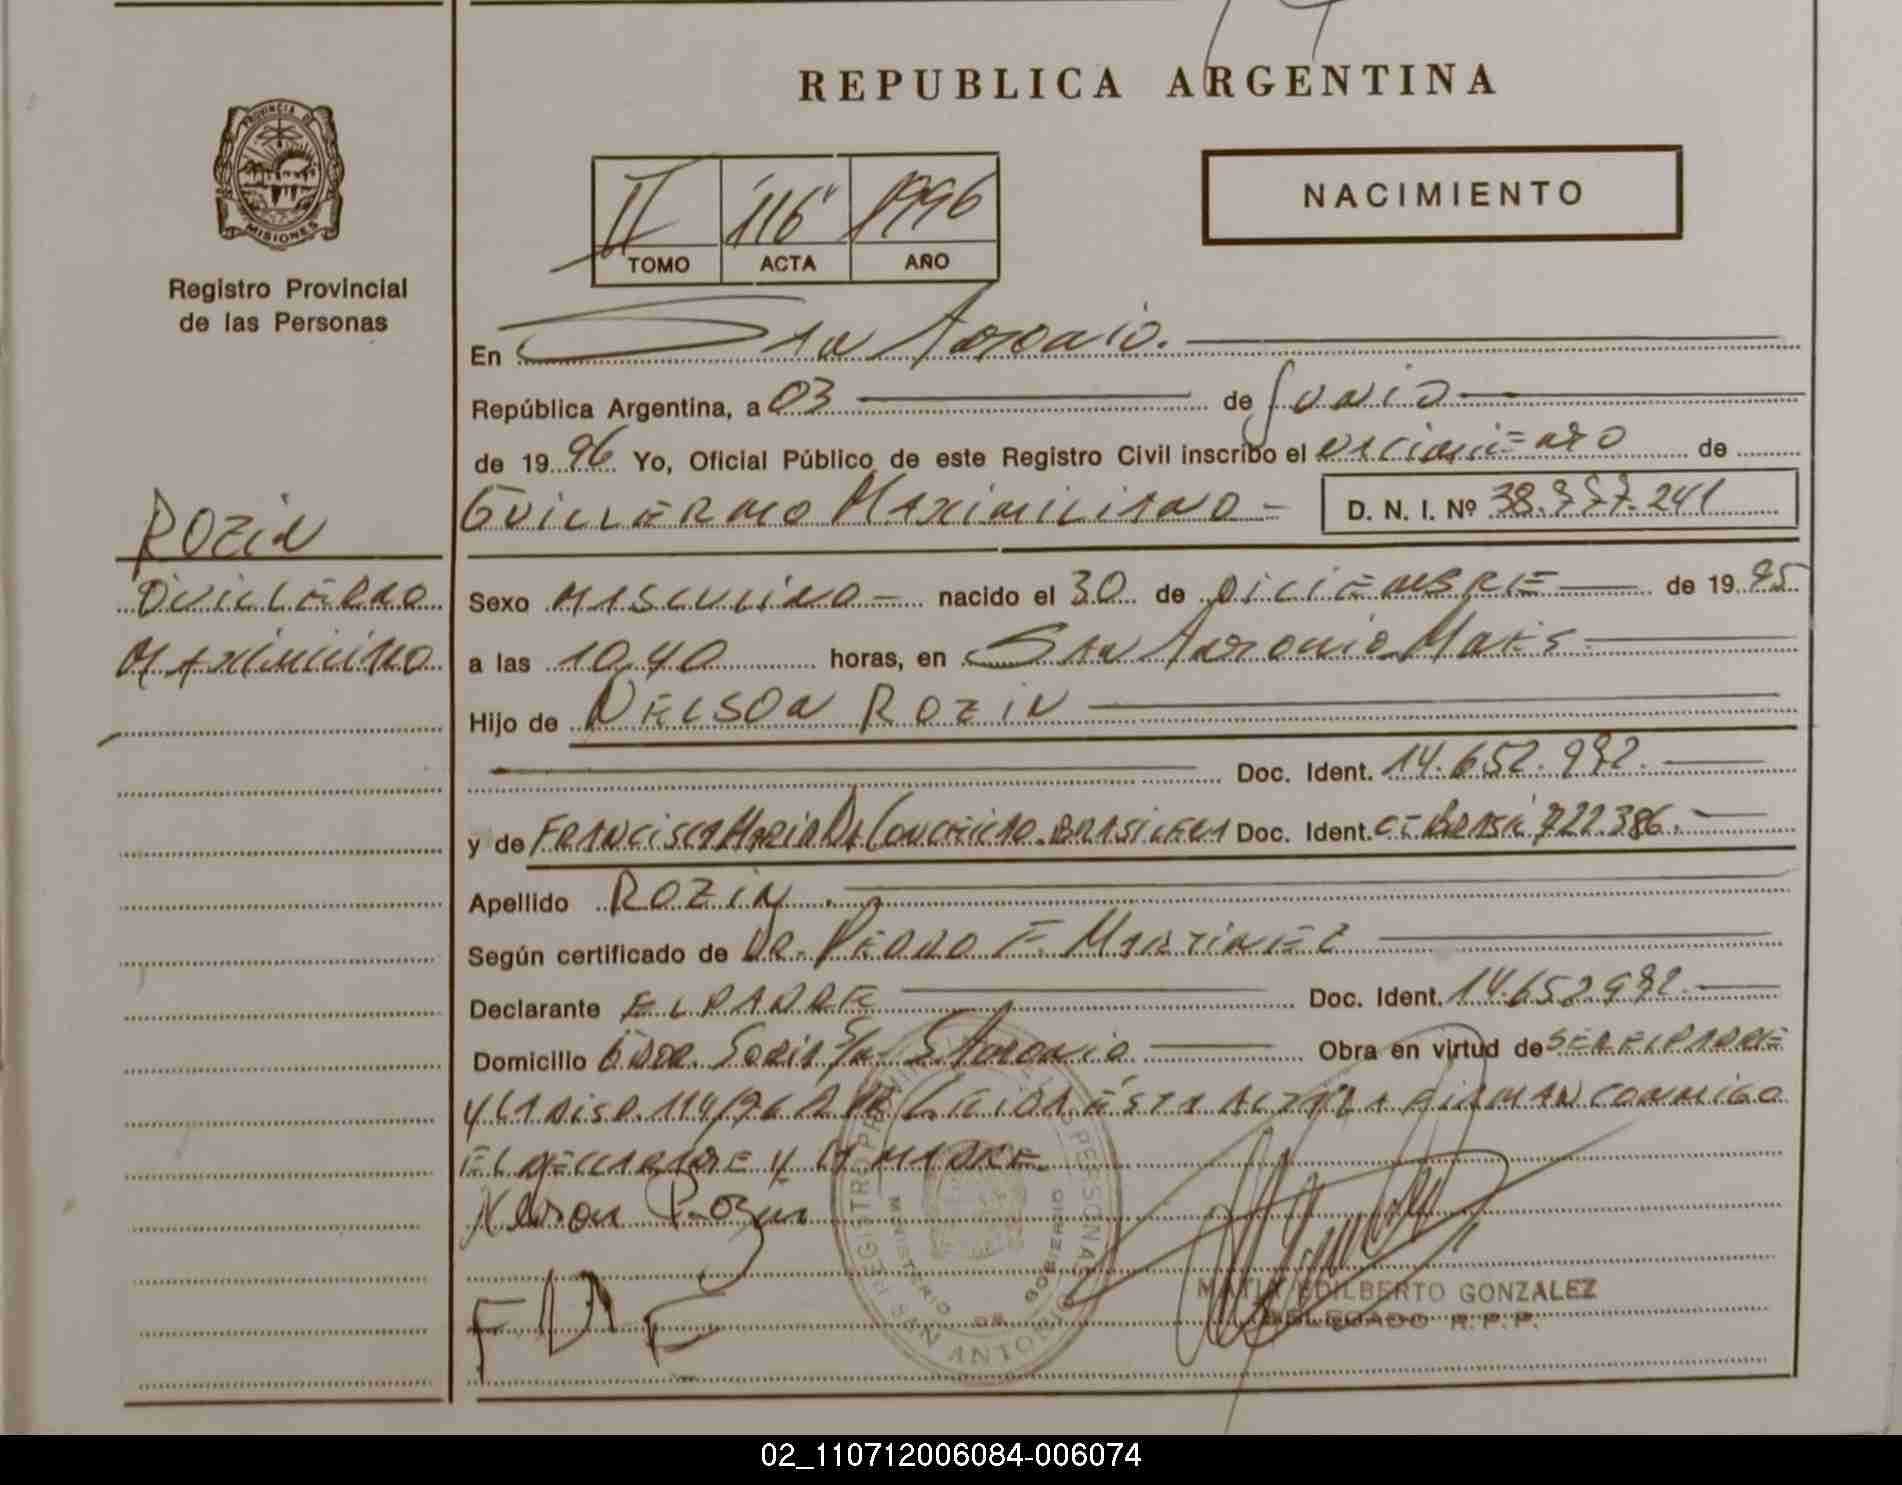 REPUBLICA ARGENTINA
PROVINCIA DE
MISIONES
Registro Provincial
de las Personas
II 116 1996
TOMO ACTA AÑO
NACIMIENTO
En San Antonio.
República Argentina, a 03 de Junio
de 1996 Yo, Oficial Público de este Registro Civil inscribo el nacimiento de
GUILLERMO MAXIMILIANO D. N. I. Nº 38.777.241
ROZIN
GUILLERMO
MAXIMILIANO
Sexo MASCULINO nacido el 30 de DICIEMBRE de 1995
a las 10,40 horas, en San Antonio Mnes
Hijo de NELSON ROZIN
Doc. Ident. 14.652.972.
y de FRANCISCA MARIA DA CONCEICAO. BRASILERA Doc. Ident. CI Brasil 722.386.
Apellido ROZIN
Según certificado de DR. PEDRO F. MARTINEZ
Declarante EL PADRE Doc. Ident. 14.652.972.
Domicilio S/n S. Antonio Obra en virtud de SER EL PADRE
Y LA DISP. 114/96 LEIDA ESTA ACTA LA FIRMAN CONMIGO
EL DECLARANTE Y LA MADRE.
Nelson Rozin
REGISTRO PROVINCIAL DE LAS PERSONAS
MINISTERIO DE GOBIERNO
SAN ANTONIO
EDILBERTO GONZALEZ
DELEGADO R.P.P.
02_110712006084-006074